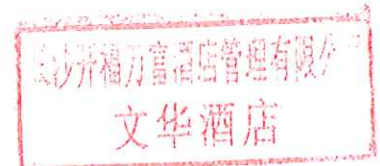 长沙开福万富酒店管理有限公司
文华酒店